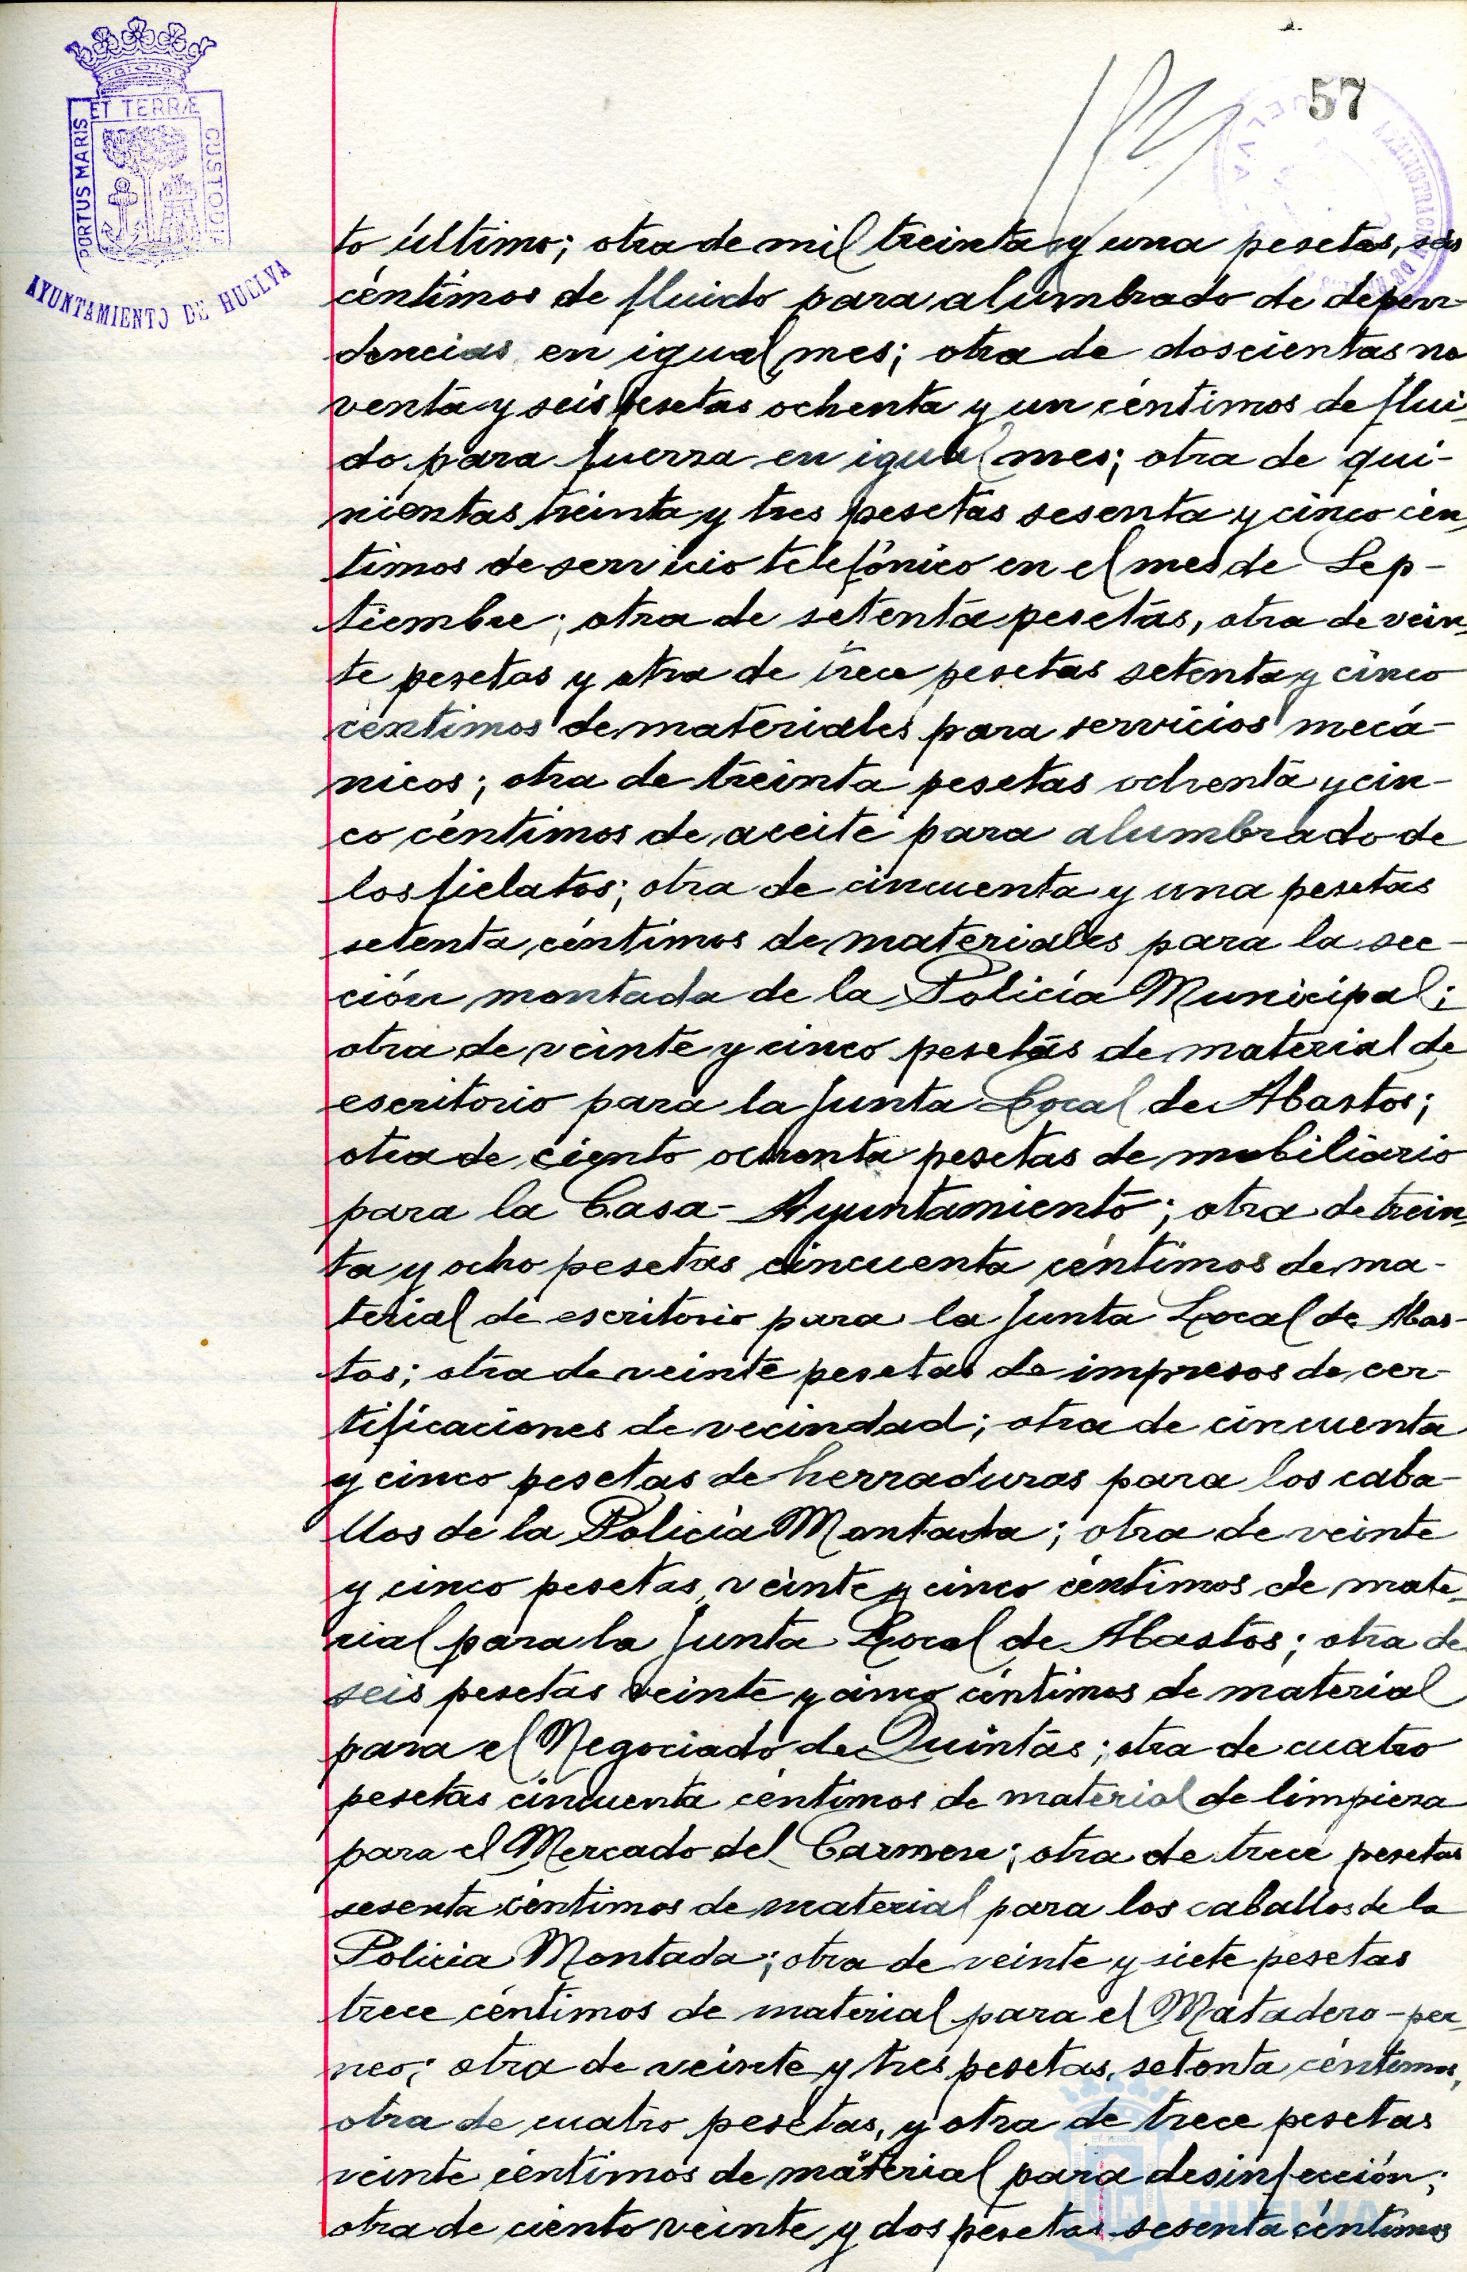 57
ET TERRÆ
PORTUS MARIS
CUSTODIA
AYUNTAMIENTO DE HUELVA
to último; otra de mil treinta y una pesetas, seis
céntimos de fluido para alumbrado de depen-
dencias en igual mes; otra de doscientas no
venta y seis pesetas ochenta y un céntimos de flui-
do para fuerza en igual mes; otra de qui-
nientas treinta y tres pesetas sesenta y cinco cén-
timos de servicio telefónico en el mes de Sep-
tiembre; otra de setenta pesetas, otra de vein-
te pesetas y otra de trece pesetas setenta y cinco
céntimos de materiales para servicios mecá-
nicos; otra de treinta pesetas ochenta y cin-
co céntimos de aceite para alumbrado de
los fielatos; otra de cincuenta y una pesetas
setenta céntimos de materiales para la sec-
ción montada de la Policía Municipal;
otra de veinte y cinco pesetas de material de
escritorio para la Junta Local de Abastos;
otra de ciento ochenta pesetas de mobiliario
para la Casa-Ayuntamiento; otra de trein-
ta y ocho pesetas cincuenta céntimos de ma-
terial de escritorio para la Junta Local de Abas-
tos; otra de veinte pesetas de impresos de cer-
tificaciones de vecindad; otra de cincuenta
y cinco pesetas de herraduras para los caba-
llos de la Policía Montada; otra de veinte
y cinco pesetas veinte y cinco céntimos de mate-
rial para la Junta Local de Abastos; otra de
seis pesetas veinte y cinco céntimos de material
para el Negociado de Quintas; otra de cuatro
pesetas cincuenta céntimos de material de limpieza
para el Mercado del Carmen; otra de trece pesetas
sesenta céntimos de material para los caballos de la
Policía Montada; otra de veinte y siete pesetas
trece céntimos de material para el Matadero-per-
neo; otra de veinte y tres pesetas, setenta céntimos,
otra de cuatro pesetas, y otra de trece pesetas
veinte céntimos de material para desinfección;
otra de ciento veinte y dos pesetas sesenta céntimos
HUELVA